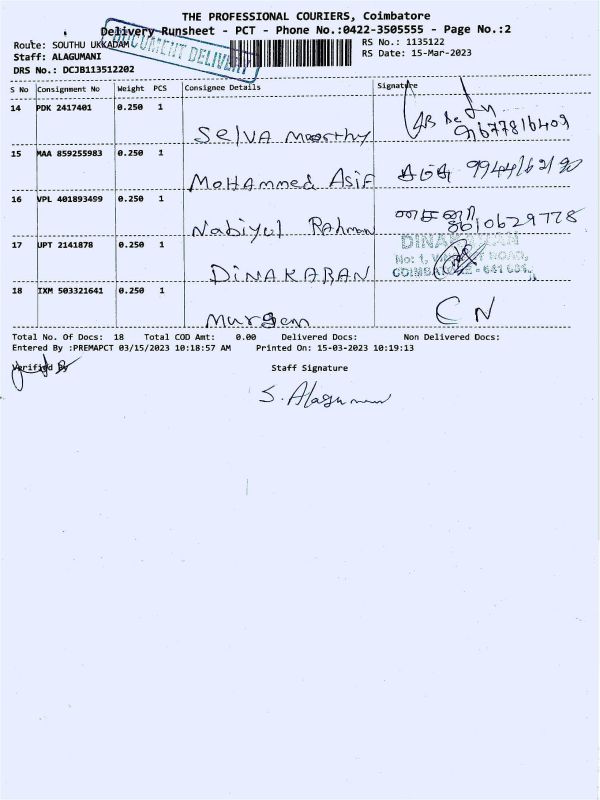 THE PROFESSIONAL COURIERS, Coimbatore
Delivery Runsheet - PCT - Phone No.:0422-3505555 - Page No.:2
Route: SOUTHU UKKADAM
DOCUMENT DELIVERY
RS No.: 1135122
Staff: ALAGUMANI
RS Date: 15-Mar-2023
DRS No.: DCJB113512202
S No Consignment No Weight PCS Consignee Details Signature
14 PDK 2417401 0.250 1
Selva Moorthy 9677816409
15 MAA 859255983 0.250 1
Mohammed Asif
16 VPL 401893499 0.250 1
Nabiyul Rahman 8610629778
17 UPT 2141878 0.250 1
DINAKARAN
DINAKARAN
No: 1, ROAD,
COIMBATORE - 641 001.
18 IXM 503321641 0.250 1
Murgan CN
Total No. Of Docs: 18 Total COD Amt: 0.00 Delivered Docs: Non Delivered Docs:
Entered By :PREMAPCT 03/15/2023 10:18:57 AM Printed On: 15-03-2023 10:19:13
Verified By
Staff Signature
S. Alagumani